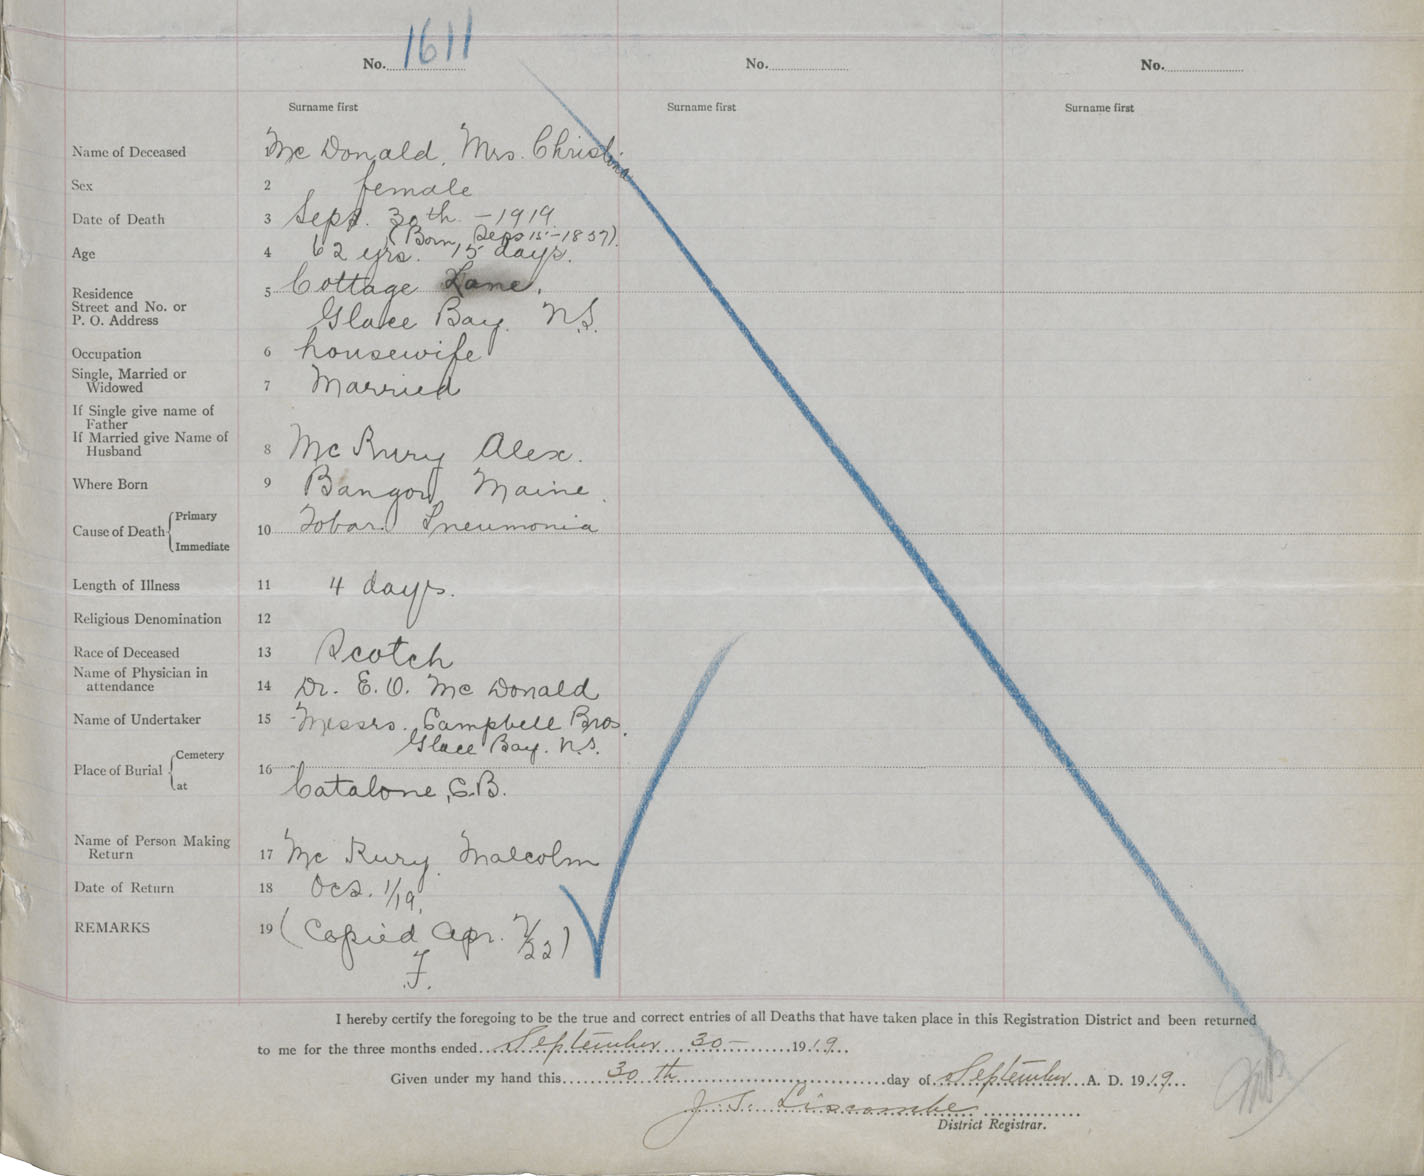 No. 1611 No. No.
Surname first Surname first Surname first
Name of Deceased 1 Mc Donald, Mrs. Christina
Sex 2 female
Date of Death 3 Sept. 30th - 1919
(Born, Sept 15 - 1857).
Age 4 62 yrs. 15 days.
Residence 5 Cottage Lane,
Street and No. or
P. O. Address Glace Bay. N.S.
Occupation 6 housewife
Single, Married or
Widowed 7 Married
If Single give name of
Father
If Married give Name of
Husband 8 Mc Rury Alex.
Where Born 9 Bangor, Maine.
Cause of Death Primary
Immediate 10 Lobar Pneumonia
Length of Illness 11 4 days.
Religious Denomination 12
Race of Deceased 13 Scotch
Name of Physician in
attendance 14 Dr. E. O. Mc Donald
Name of Undertaker 15 Messrs. Campbell Bros.
Glace Bay. N.S.
Place of Burial Cemetery
at 16 Catalone, C.B.
Name of Person Making
Return 17 Mc Rury, Malcolm
Date of Return 18 Oct. 1/19.
REMARKS 19 (Copied Apr. 7/22)
F.
I hereby certify the foregoing to be the true and correct entries of all Deaths that have taken place in this Registration District and been returned
to me for the three months ended September 30 - 1919.
Given under my hand this 30th day of September A. D. 1919.
J. T. Liscombe
District Registrar.